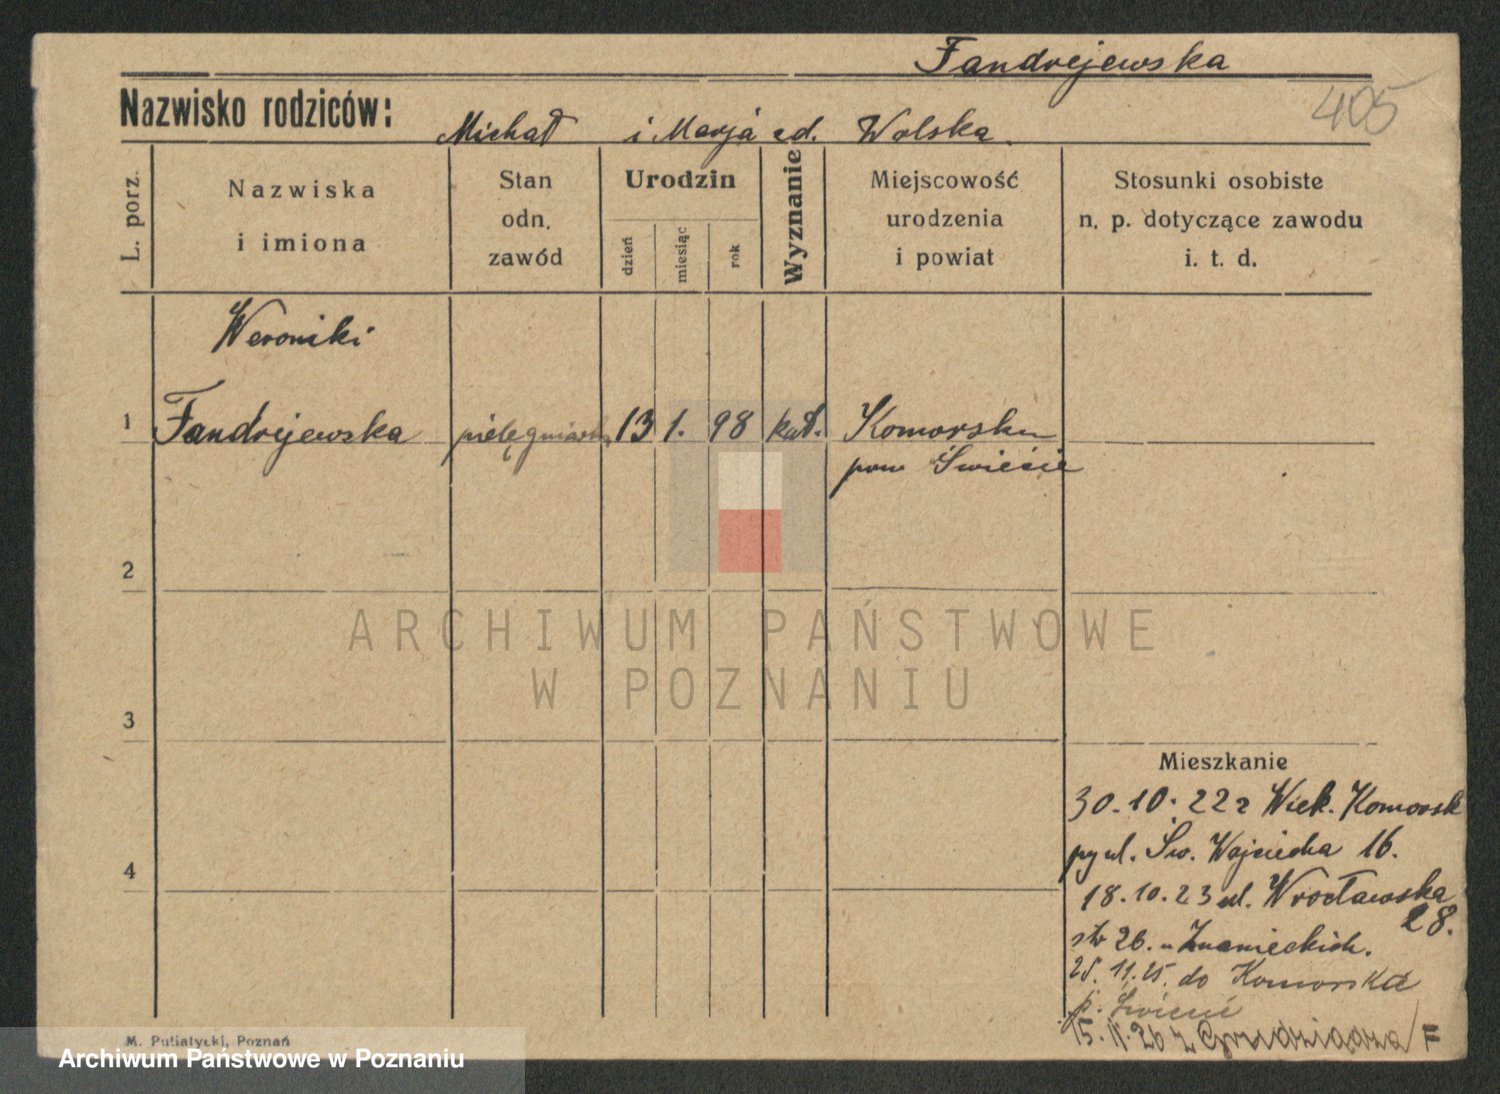 Fandrejewska
405
Nazwisko rodziców: Michał i Marja zd. Wolska.
L. porz.
Nazwiska
i imiona
Stan
odn.
zawód
Urodzin
dzień
miesiąc
rok
Wyznanie
Miejscowość
urodzenia
i powiat
Stosunki osobiste
n. p. dotyczące zawodu
i. t. d.
Weroniki
1 Fandrejewska pielęgniarka 13 1. 98 kat. Komorsku
pow Świecie
2
3
4
Mieszkanie
30.10.22 z Wiek. Komorsk
ul. Św. Wojciecha 16.
18.10.23 ul. Wrocławska
28.
26. u Znanieckich.
25.11.25. do Komorska
p. Świecie
15.11.26 z Grudziądza F
M. Putiatycki, Poznań
ARCHIWUM PAŃSTWOWE
W POZNANIU
Archiwum Państwowe w Poznaniu